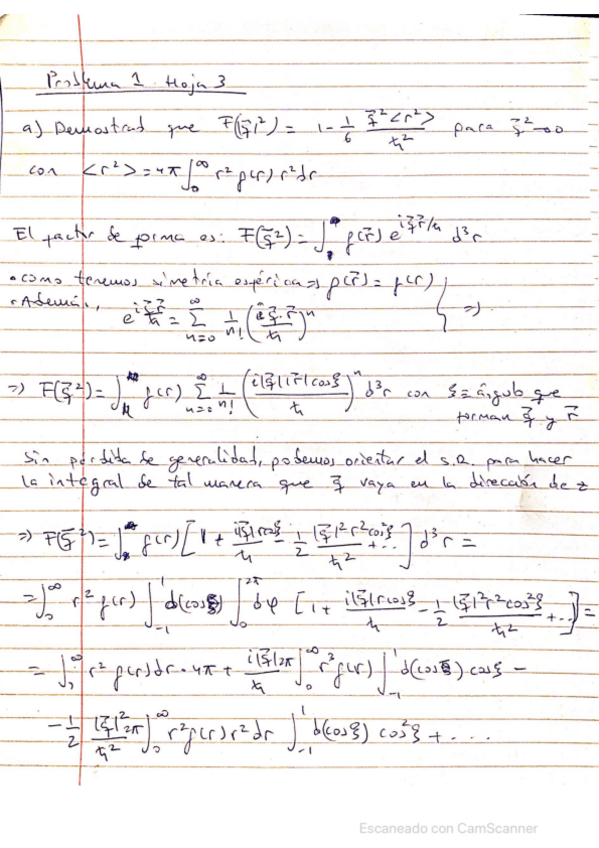 Problema 1 Hoja 3
a) Demostrad que F(|q⃗|²) = 1 - 1/6 q⃗²<r²>/ħ² para q⃗² → 0
con <r²> = 4π ∫₀^∞ r² ρ(r) r² dr
El factor de forma es: F(q⃗²) = ∫ ρ(r⃗) e^{iq⃗r⃗/ħ} d³r
• como tenemos simetría esférica ⇒ ρ(r⃗) = ρ(r)
• Además, e^{iq⃗·r⃗/ħ} = Σ_{n=0}^∞ 1/n! (iq⃗·r⃗/ħ)ⁿ } ⇒
⇒ F(q⃗²) = ∫ ρ(r) Σ_{n=0}^∞ 1/n! (i|q⃗||r⃗|cosξ/ħ)ⁿ d³r con ξ ≡ ángulo que
forman q⃗ y r⃗
Sin pérdida de generalidad, podemos orientar el S.R. para hacer
la integral de tal manera que q⃗ vaya en la dirección de z
⇒ F(q⃗²) = ∫ ρ(r) [1 + i|q⃗|rcosξ/ħ - 1/2 |q⃗|²r²cos²ξ/ħ² + ...] d³r =
= ∫₀^∞ r² ρ(r) ∫₋₁^1 d(cosξ) ∫₀^{2π} dφ [1 + i|q⃗|rcosξ/ħ - 1/2 |q⃗|²r²cos²ξ/ħ² + ...] =
= ∫₀^∞ r² ρ(r) dr · 4π + i|q⃗|2π/ħ ∫₀^∞ r³ ρ(r) ∫₋₁^1 d(cosξ) cosξ -
- 1/2 |q⃗|²2π/ħ² ∫₀^∞ r² ρ(r) r² dr ∫₋₁^1 d(cosξ) cos²ξ + ...
Escaneado con CamScanner